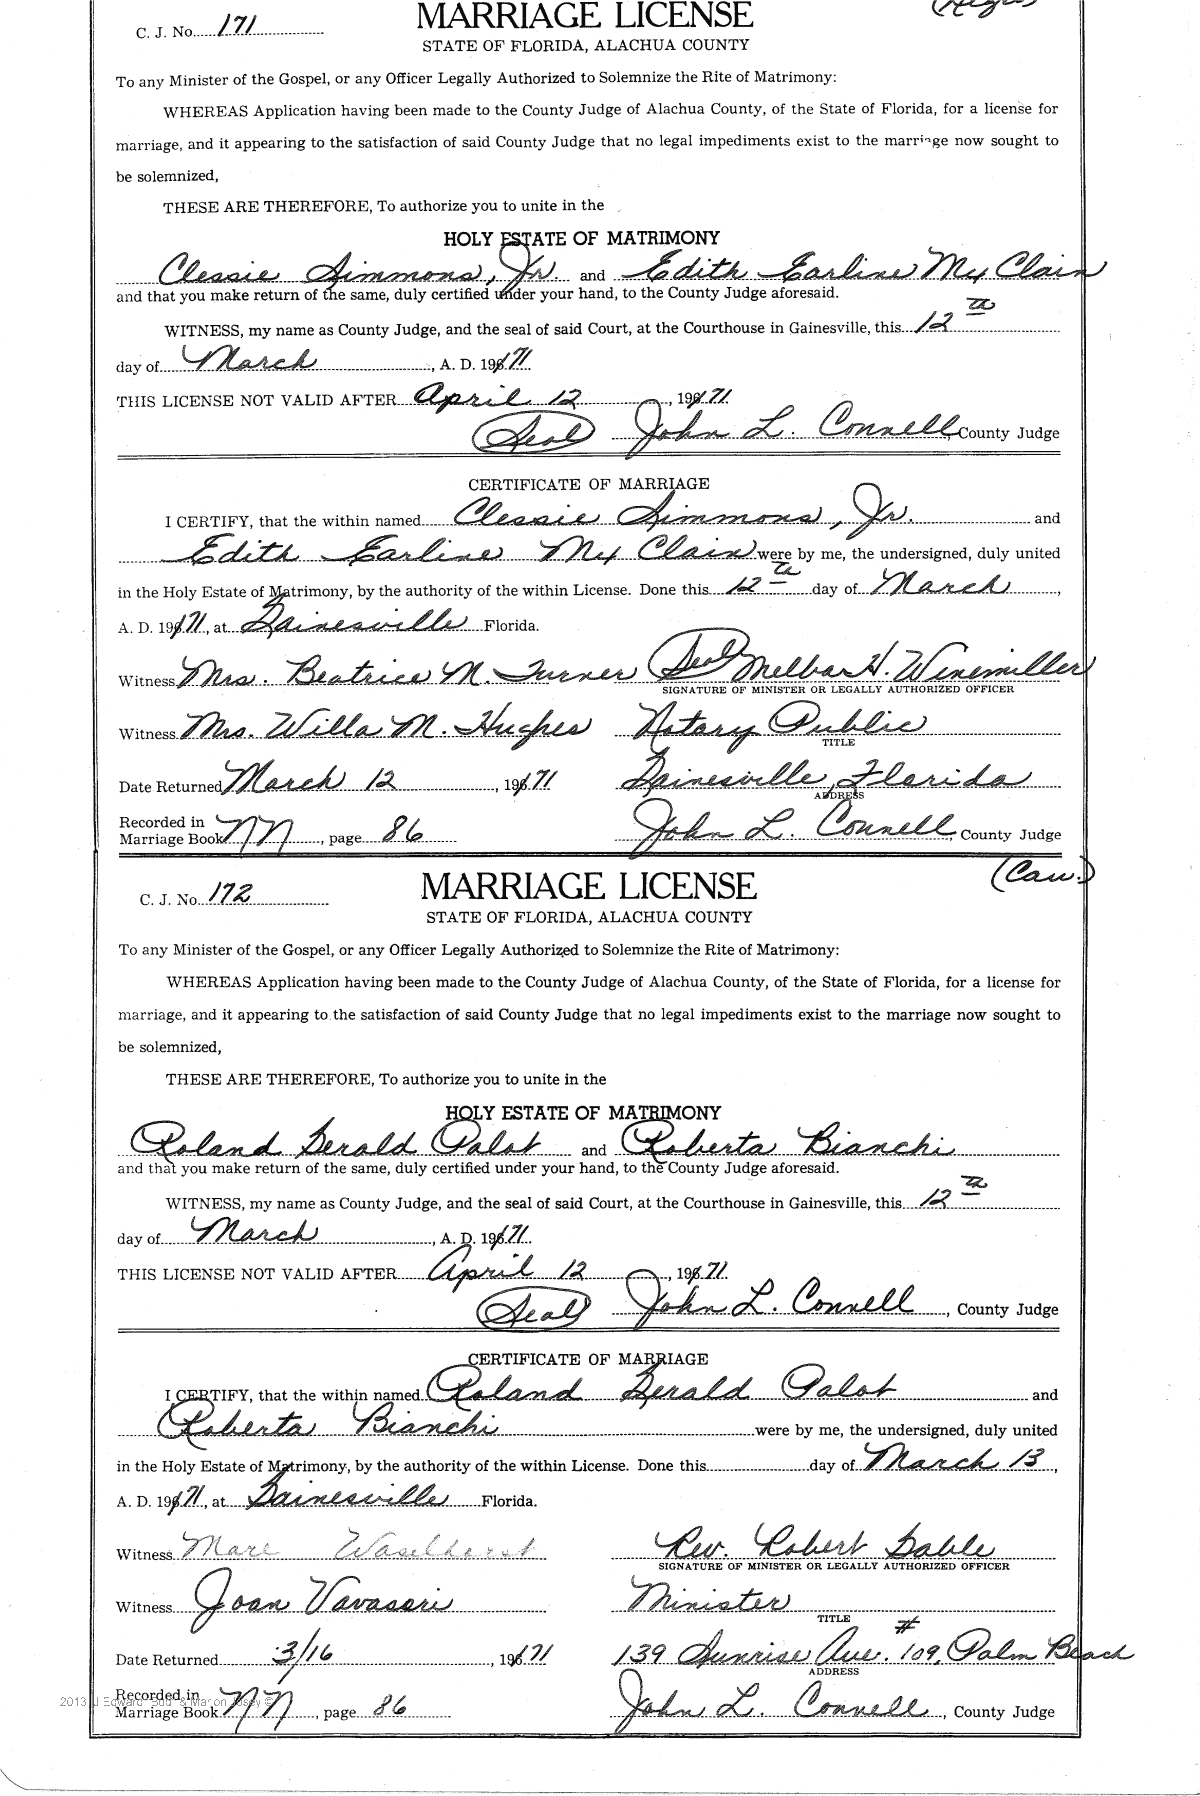 C. J. No. 171 MARRIAGE LICENSE
STATE OF FLORIDA, ALACHUA COUNTY
To any Minister of the Gospel, or any Officer Legally Authorized to Solemnize the Rite of Matrimony:
WHEREAS Application having been made to the County Judge of Alachua County, of the State of Florida, for a license for
marriage, and it appearing to the satisfaction of said County Judge that no legal impediments exist to the marriage now sought to
be solemnized,
THESE ARE THEREFORE, To authorize you to unite in the
HOLY ESTATE OF MATRIMONY
Clessie Simmons, Jr. and Edith Earline Mx Clain
and that you make return of the same, duly certified under your hand, to the County Judge aforesaid.
WITNESS, my name as County Judge, and the seal of said Court, at the Courthouse in Gainesville, this 12th
day of March, A. D. 1971
THIS LICENSE NOT VALID AFTER April 12, 1971
(Seal) John L. Connell County Judge
CERTIFICATE OF MARRIAGE
I CERTIFY, that the within named Clessie Simmons, Jr. and
Edith Earline Mx Clain were by me, the undersigned, duly united
in the Holy Estate of Matrimony, by the authority of the within License. Done this 12th day of March,
A. D. 1971, at Gainesville Florida.
Witness Mrs. Beatrice M. Turner (Seal) Melba H. Winemiller
SIGNATURE OF MINISTER OR LEGALLY AUTHORIZED OFFICER
Witness Mrs. Willa M. Hughes Notary Public
TITLE
Date Returned March 12, 1971 Gainesville, Florida
ADDRESS
Recorded in
Marriage Book NN, page 86 John L. Connell, County Judge
(Cau.)
C. J. No. 172 MARRIAGE LICENSE
STATE OF FLORIDA, ALACHUA COUNTY
To any Minister of the Gospel, or any Officer Legally Authorized to Solemnize the Rite of Matrimony:
WHEREAS Application having been made to the County Judge of Alachua County, of the State of Florida, for a license for
marriage, and it appearing to the satisfaction of said County Judge that no legal impediments exist to the marriage now sought to
be solemnized,
THESE ARE THEREFORE, To authorize you to unite in the
HOLY ESTATE OF MATRIMONY
Roland Gerald Palot and Roberta Bianchi
and that you make return of the same, duly certified under your hand, to the County Judge aforesaid.
WITNESS, my name as County Judge, and the seal of said Court, at the Courthouse in Gainesville, this 12th
day of March, A. D. 1971.
THIS LICENSE NOT VALID AFTER April 12, 1971.
(Seal) John L. Connell, County Judge
CERTIFICATE OF MARRIAGE
I CERTIFY, that the within named Roland Gerald Palot and
Roberta Bianchi were by me, the undersigned, duly united
in the Holy Estate of Matrimony, by the authority of the within License. Done this day of March 13,
A. D. 1971, at Gainesville Florida.
Witness Rev. Robert Gable
SIGNATURE OF MINISTER OR LEGALLY AUTHORIZED OFFICER
Witness Joan Vavasori Minister
TITLE
Date Returned 3/16, 1971 139 Sunrise Ave. #109, Palm Beach
ADDRESS
Recorded in
Marriage Book NN, page 86 John L. Connell, County Judge